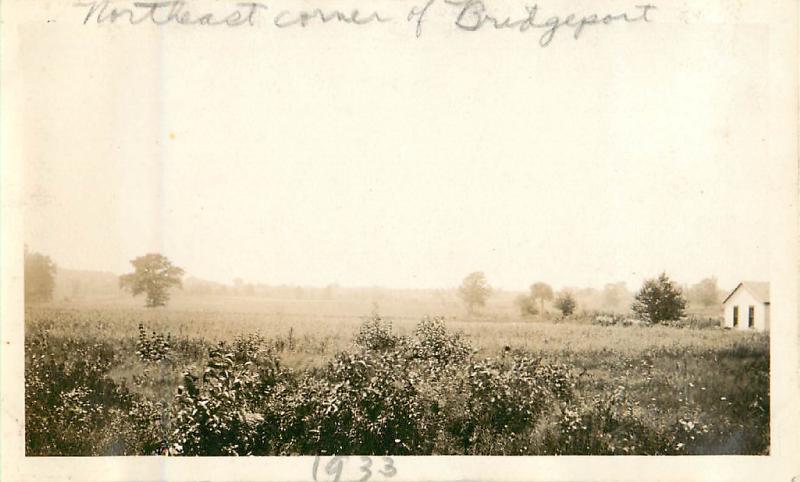 Northeast corner of Bridgeport
1933